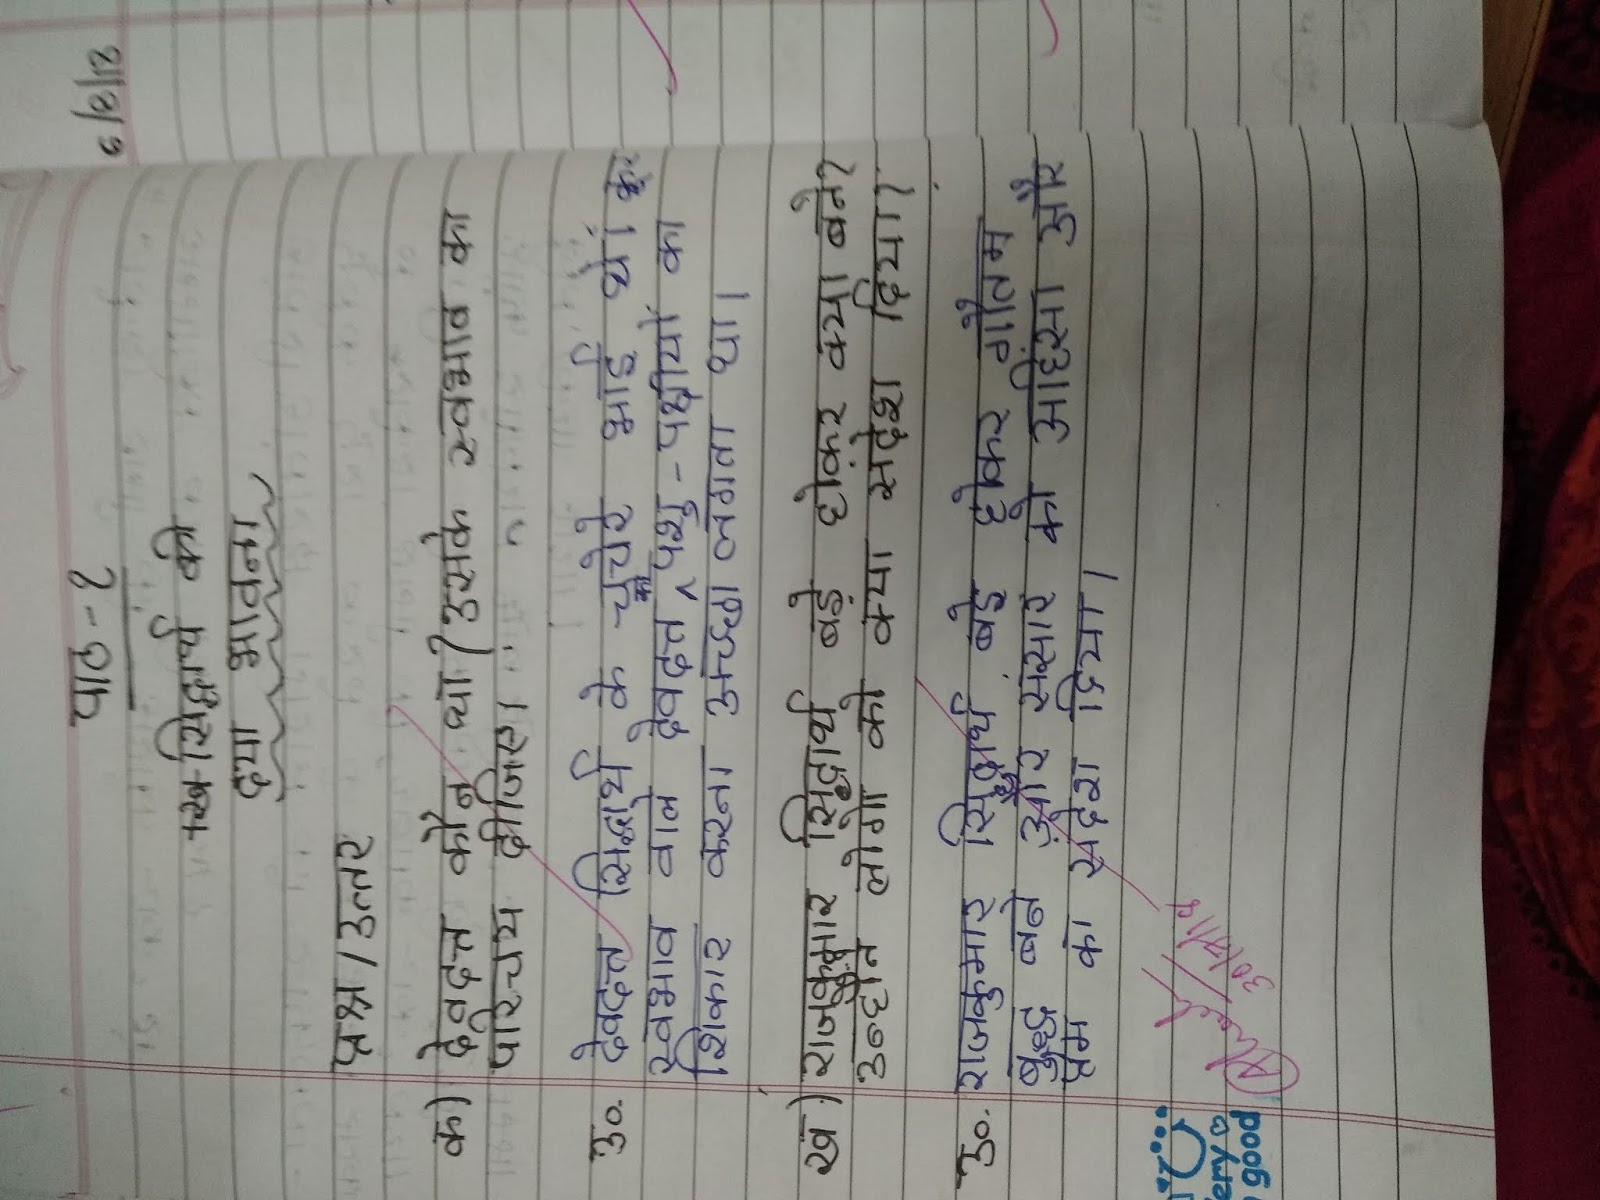 पाठ-२
सिद्धार्थ की
दया भावना
प्रश्न/उत्तर
क) देवदत्त कौन था? उसके स्वभाव का
परिचय दीजिए।
उ०. देवदत्त सिद्धार्थ के चचेरे भाई थे। क्रूर
स्वभाव वाले देवदत्त को पशु-पक्षीयों का
शिकार करना अच्छा लगता था।
ख) राजकुमार सिद्धार्थ बड़े होकर क्या बने?
उन्होंने लोगों को क्या संदेश दिया?
उ०. राजकुमार सिद्धार्थ बड़े होकर गौतम
बुद्ध बने और संसार को अहिंसा और
प्रेम का संदेश दिया।
30/7/18
very
good
6/8/18